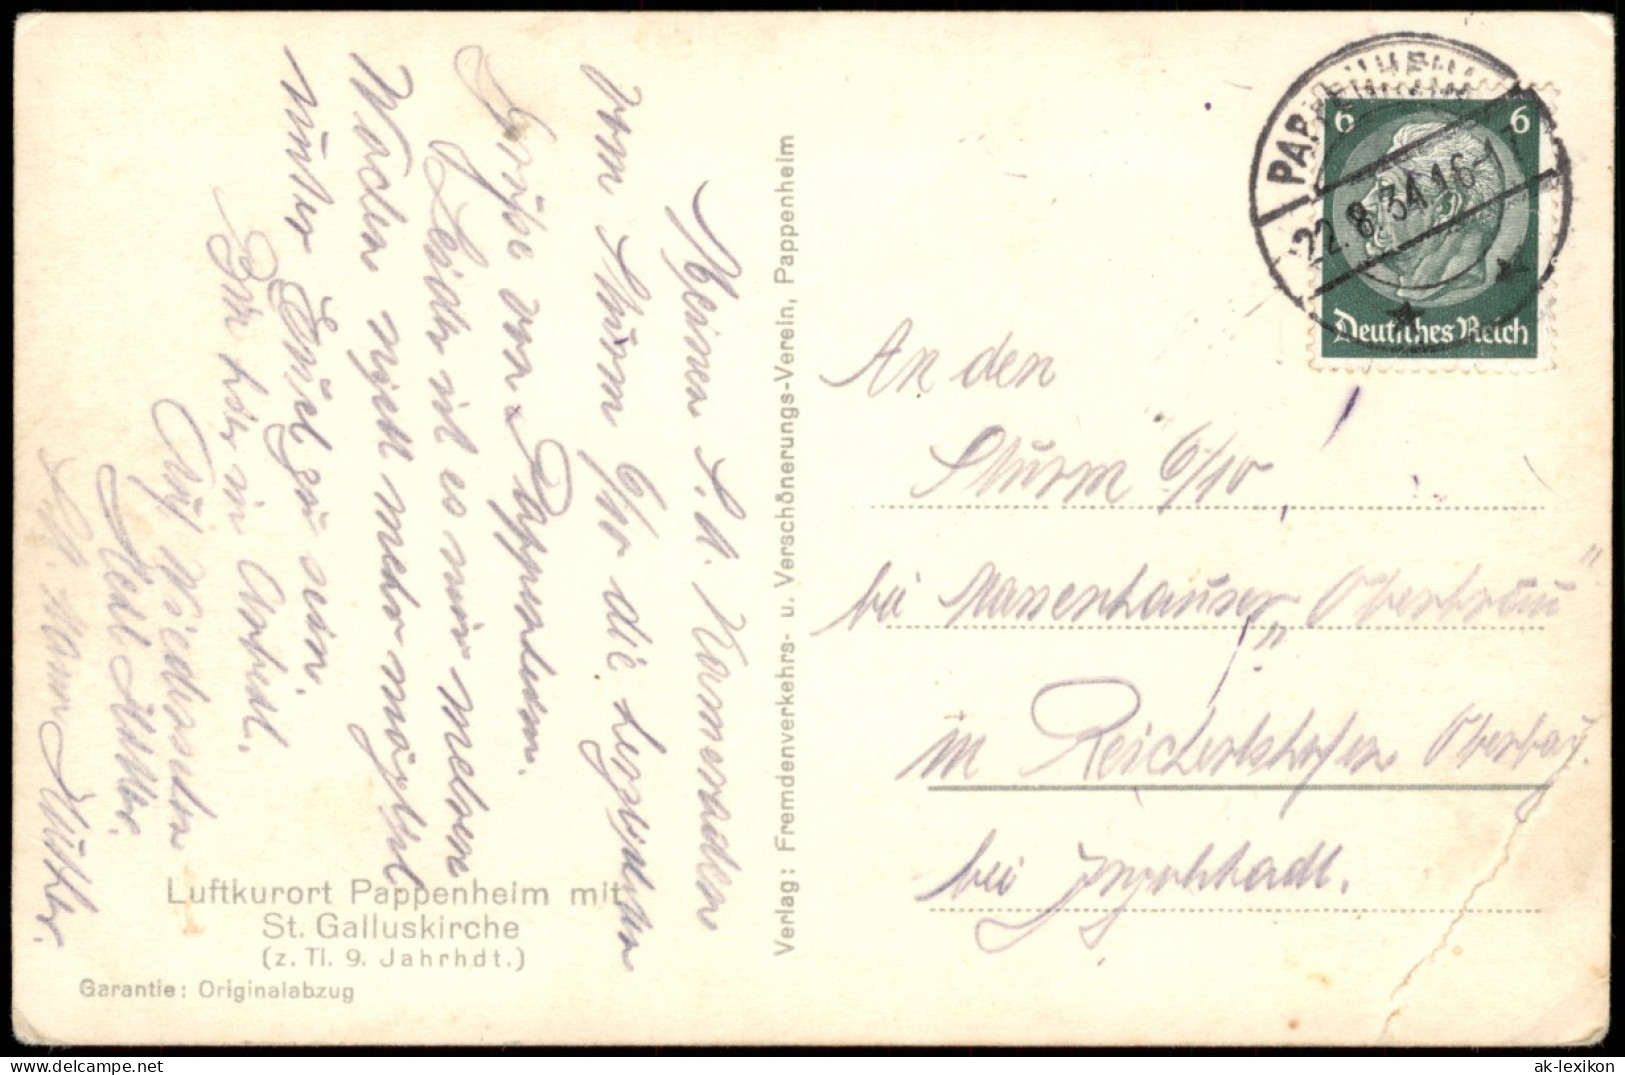 Meinen S.A. Kameraden
vom Sturm 6/10 die herzlichsten
Grüße von Pappenheim.
Leider ist es mir mehrere
Wochen nicht mehr möglich
unter Euch zu sein.
Bin hier in Arbeit.
Auf Wiedersehn
Heil Hitler.
S.A. Mann
Luftkurort Pappenheim mit
St. Galluskirche
(z. Tl. 9. Jahrhdt.)
Garantie: Originalabzug
Verlag: Fremdenverkehrs- u. Verschönerungs-Verein, Pappenheim
PAPPENHEIM
22.8.34.16-17
6 6
Deutsches Reich
An den
Sturm 6/10
bei „Oberbräu“
in Reichertshofen Oberbay.
bei Ingolstadt.
ak-lexikon